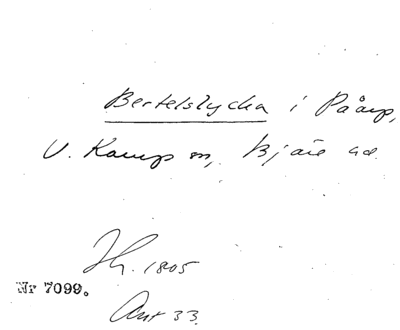 Bertelslycka i Påarp,
V. Karup sn, Bjäre hd.
Jh. 1805
Nr 7099.
Ant 33.